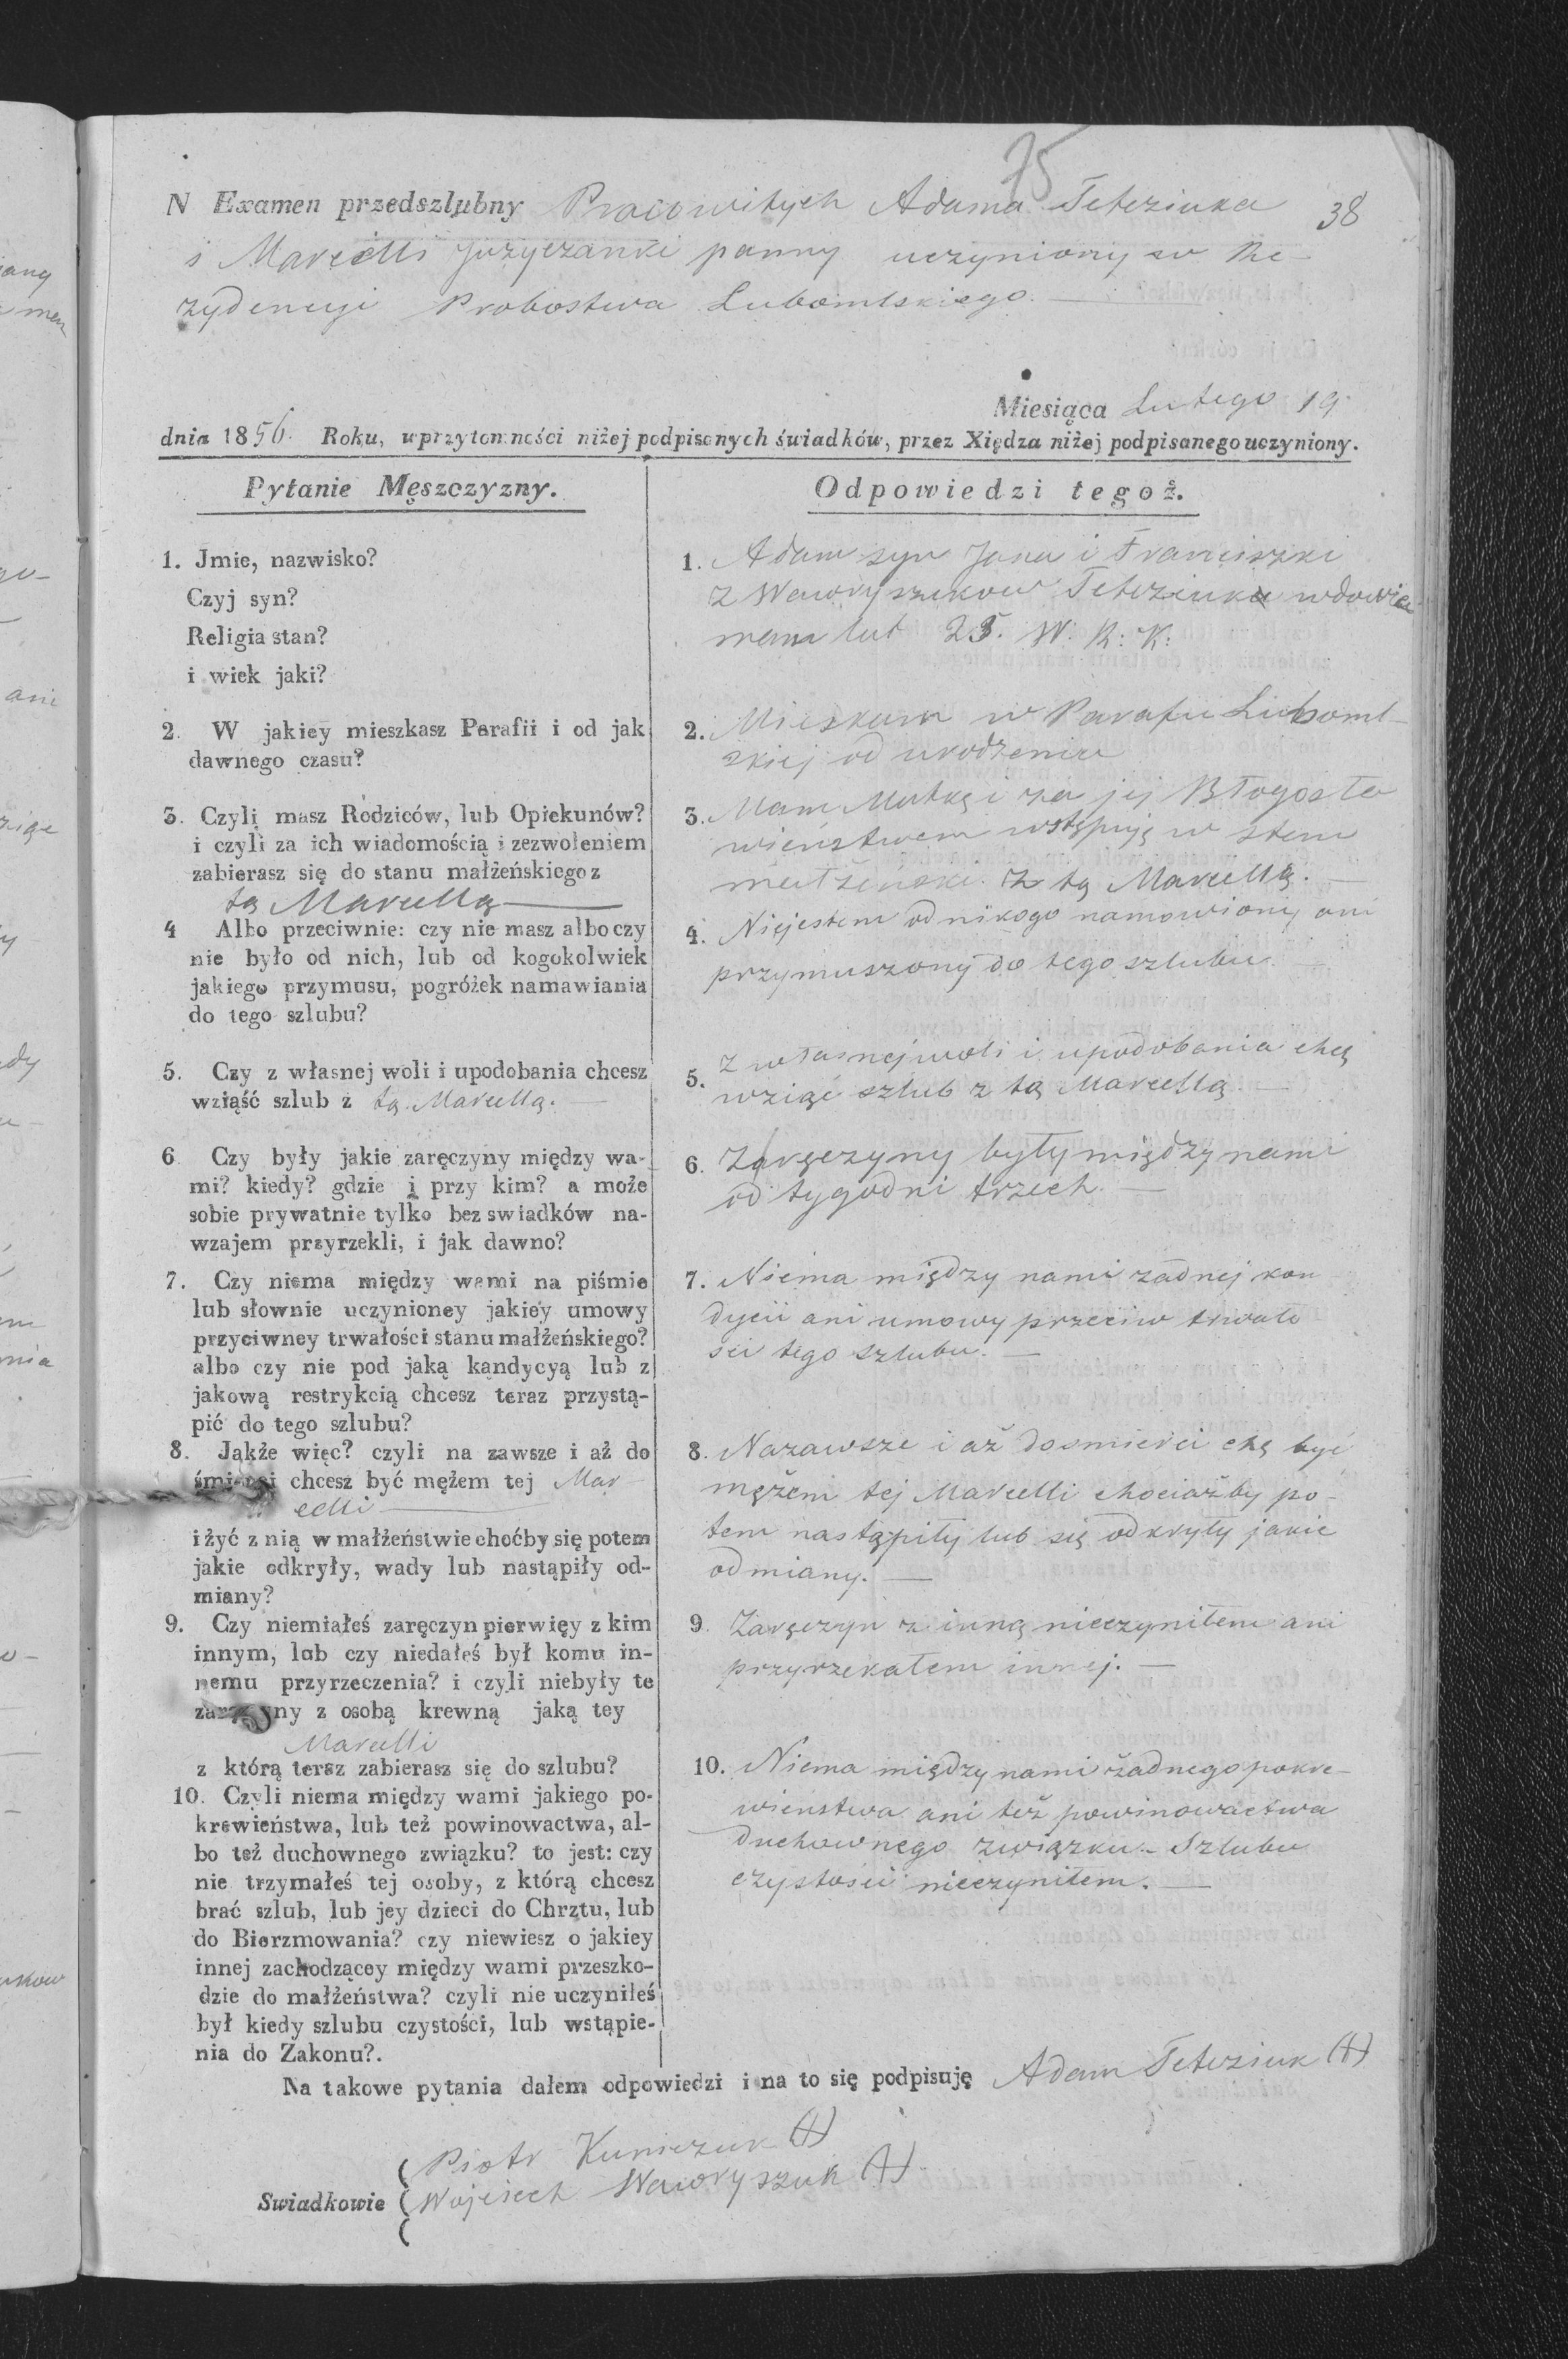 75
38
N Examen przedszlubny Pracowitych Adama Teterziuka
i Marcelli Juzyczanki panny uczyniony w Re-
zydencyi Probostwa Lubomlskiego.
Miesiąca Lutego 19
dnia 1856. Roku, w przytomności niżej podpisanych świadków, przez Xiędza niżej podpisanego uczyniony.
Pytanie Męszczyzny.
1. Jmie, nazwisko?
Czyj syn?
Religia stan?
i wiek jaki?
2. W jakiey mieszkasz Parafii i od jak
dawnego czasu?
3. Czyli masz Rodziców, lub Opiekunów?
i czyli za ich wiadomością i zezwoleniem
zabierasz się do stanu małżeńskiego z
tą Marcellą
4 Albo przeciwnie: czy nie masz albo czy
nie było od nich, lub od kogokolwiek
jakiego przymusu, pogróżek namawiania
do tego szlubu?
5. Czy z własnej woli i upodobania chcesz
wziąść szlub z tą Marcellą.
6 Czy były jakie zaręczyny między wa-
mi? kiedy? gdzie i przy kim? a może
sobie prywatnie tylko bez swiadków na-
wzajem przyrzekli, i jak dawno?
7. Czy niema między wami na piśmie
lub słownie uczynioney jakiey umowy
przyciwney trwałości stanu małżeńskiego?
albo czy nie pod jaką kandycyą lub z
jakową restrykcią chcesz teraz przystą-
pić do tego szlubu?
8. Jąkże więc? czyli na zawsze i aż do
śmierci chcesz być mężem tej Mar
celli
i żyć z nią w małżeństwie choćby się potem
jakie odkryły, wady lub nastąpiły od-
miany?
9. Czy niemiałeś zaręczyn pierwięy z kim
innym, lub czy niedałeś był komu in-
nemu przyrzeczenia? i czyli niebyły te
zaręczyny z osobą krewną jaką tey
Marcelli
z którą teraz zabierasz się do szlubu?
10. Czyli niema między wami jakiego po-
krewieństwa, lub też powinowactwa, al-
bo też duchownego związku? to jest: czy
nie trzymałeś tej osoby, z którą chcesz
brać szlub, lub jey dzieci do Chrztu, lub
do Bierzmowania? czy niewiesz o jakiey
innej zachodzącey między wami przeszko-
dzie do małżeństwa? czyli nie uczyniłeś
był kiedy szlubu czystości, lub wstąpie-
nia do Zakonu?.
Odpowiedzi tegoż.
1. Adam syn Jana i Franciszki
z Wawryszukow Teterziuk wdowiec
mam lat 25. W. R: K:
2. Mieskam w Parafii Luboml-
skiej od urodzenia
3. Mam Matkę i za jej Błogosła
wieństwem wstępuję w stan
małżenski z tą Marcellą.
4. Niejestem od nikogo namowiony ani
przymuszony do tego szlubu.
5. z własnej woli i upodobania chcę
wziąć szlub z tą Marcellą
6. Zaręczyny były między nami
od tygodni trzech.
7. Niema między nami żadnej kon
dycii ani umowy przeciw trwało
ści tego szlubu.
8. Nazawsze i aż dosmierci chę być
mężem tej Marcelli chociażby po-
tem nastąpiły lub się odkryły jakie
odmiany.
9. Zaręczyn z inną nieczyniłem ani
przyrzekałem innej.
10. Niema między nami żadnego pokre-
wienstwa ani też powinowactwa
duchownego związku - Szlubu
czystości nieczyniłem.
Na takowe pytania dałem odpowiedzi i na to się podpisuję Adam Teterziuk (+)
Piotr Kuniczuk (+)
Swiadkowie Wojciech Wawryszuk (+)